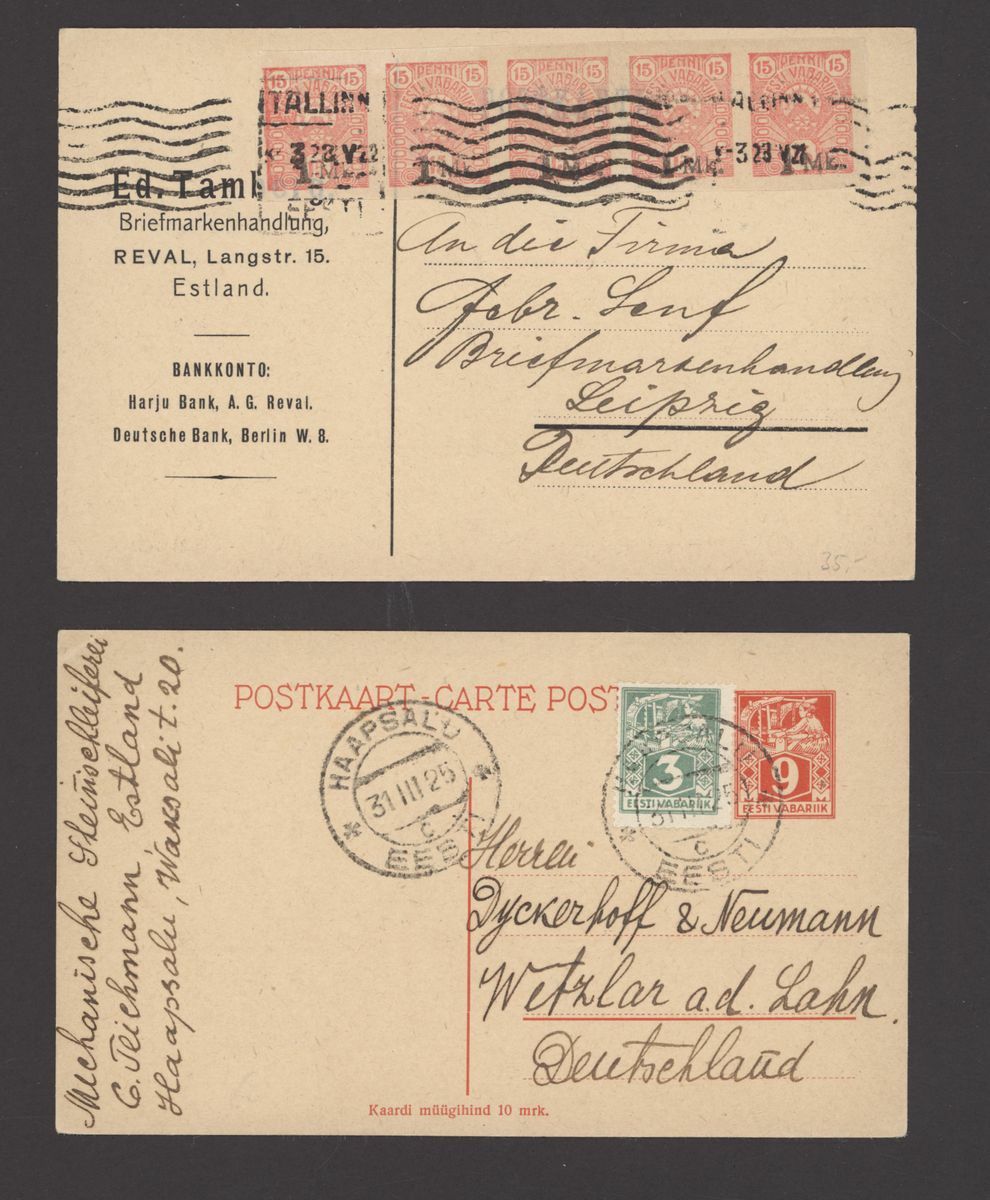 15 PENNI 15 15 PENNI 15 15 PENNI 15 15 PENNI 15 15 PENNI 15
EESTI VABARIIK
TALLINN TALLINN
1 Mk. 1 Mk. 1 Mk. 1 Mk. 1 Mk.
EESTI
Ed. Tam
Briefmarkenhandlung,
REVAL, Langstr. 15.
Estland.
BANKKONTO:
Harju Bank, A. G. Reval.
Deutsche Bank, Berlin W. 8.
An die Firma
Gebr. Senf
Briefmarkenhandlung
Leipzig
Deutschland
35,-
POSTKAART-CARTE POST
3
EESTI VABARIIK
9
EESTI VABARIIK
HAAPSALU
31 III 25
C
EESTI
HAAPSALU
31 III 25
C
EESTI
Mechanische Steinschleiferei
C. Teichmann Estland
Haapsalu, Waksali t. 20.
Herren
Dyckerhoff & Neumann
Wetzlar a.d. Lahn.
Deutschland
Kaardi müügihind 10 mrk.